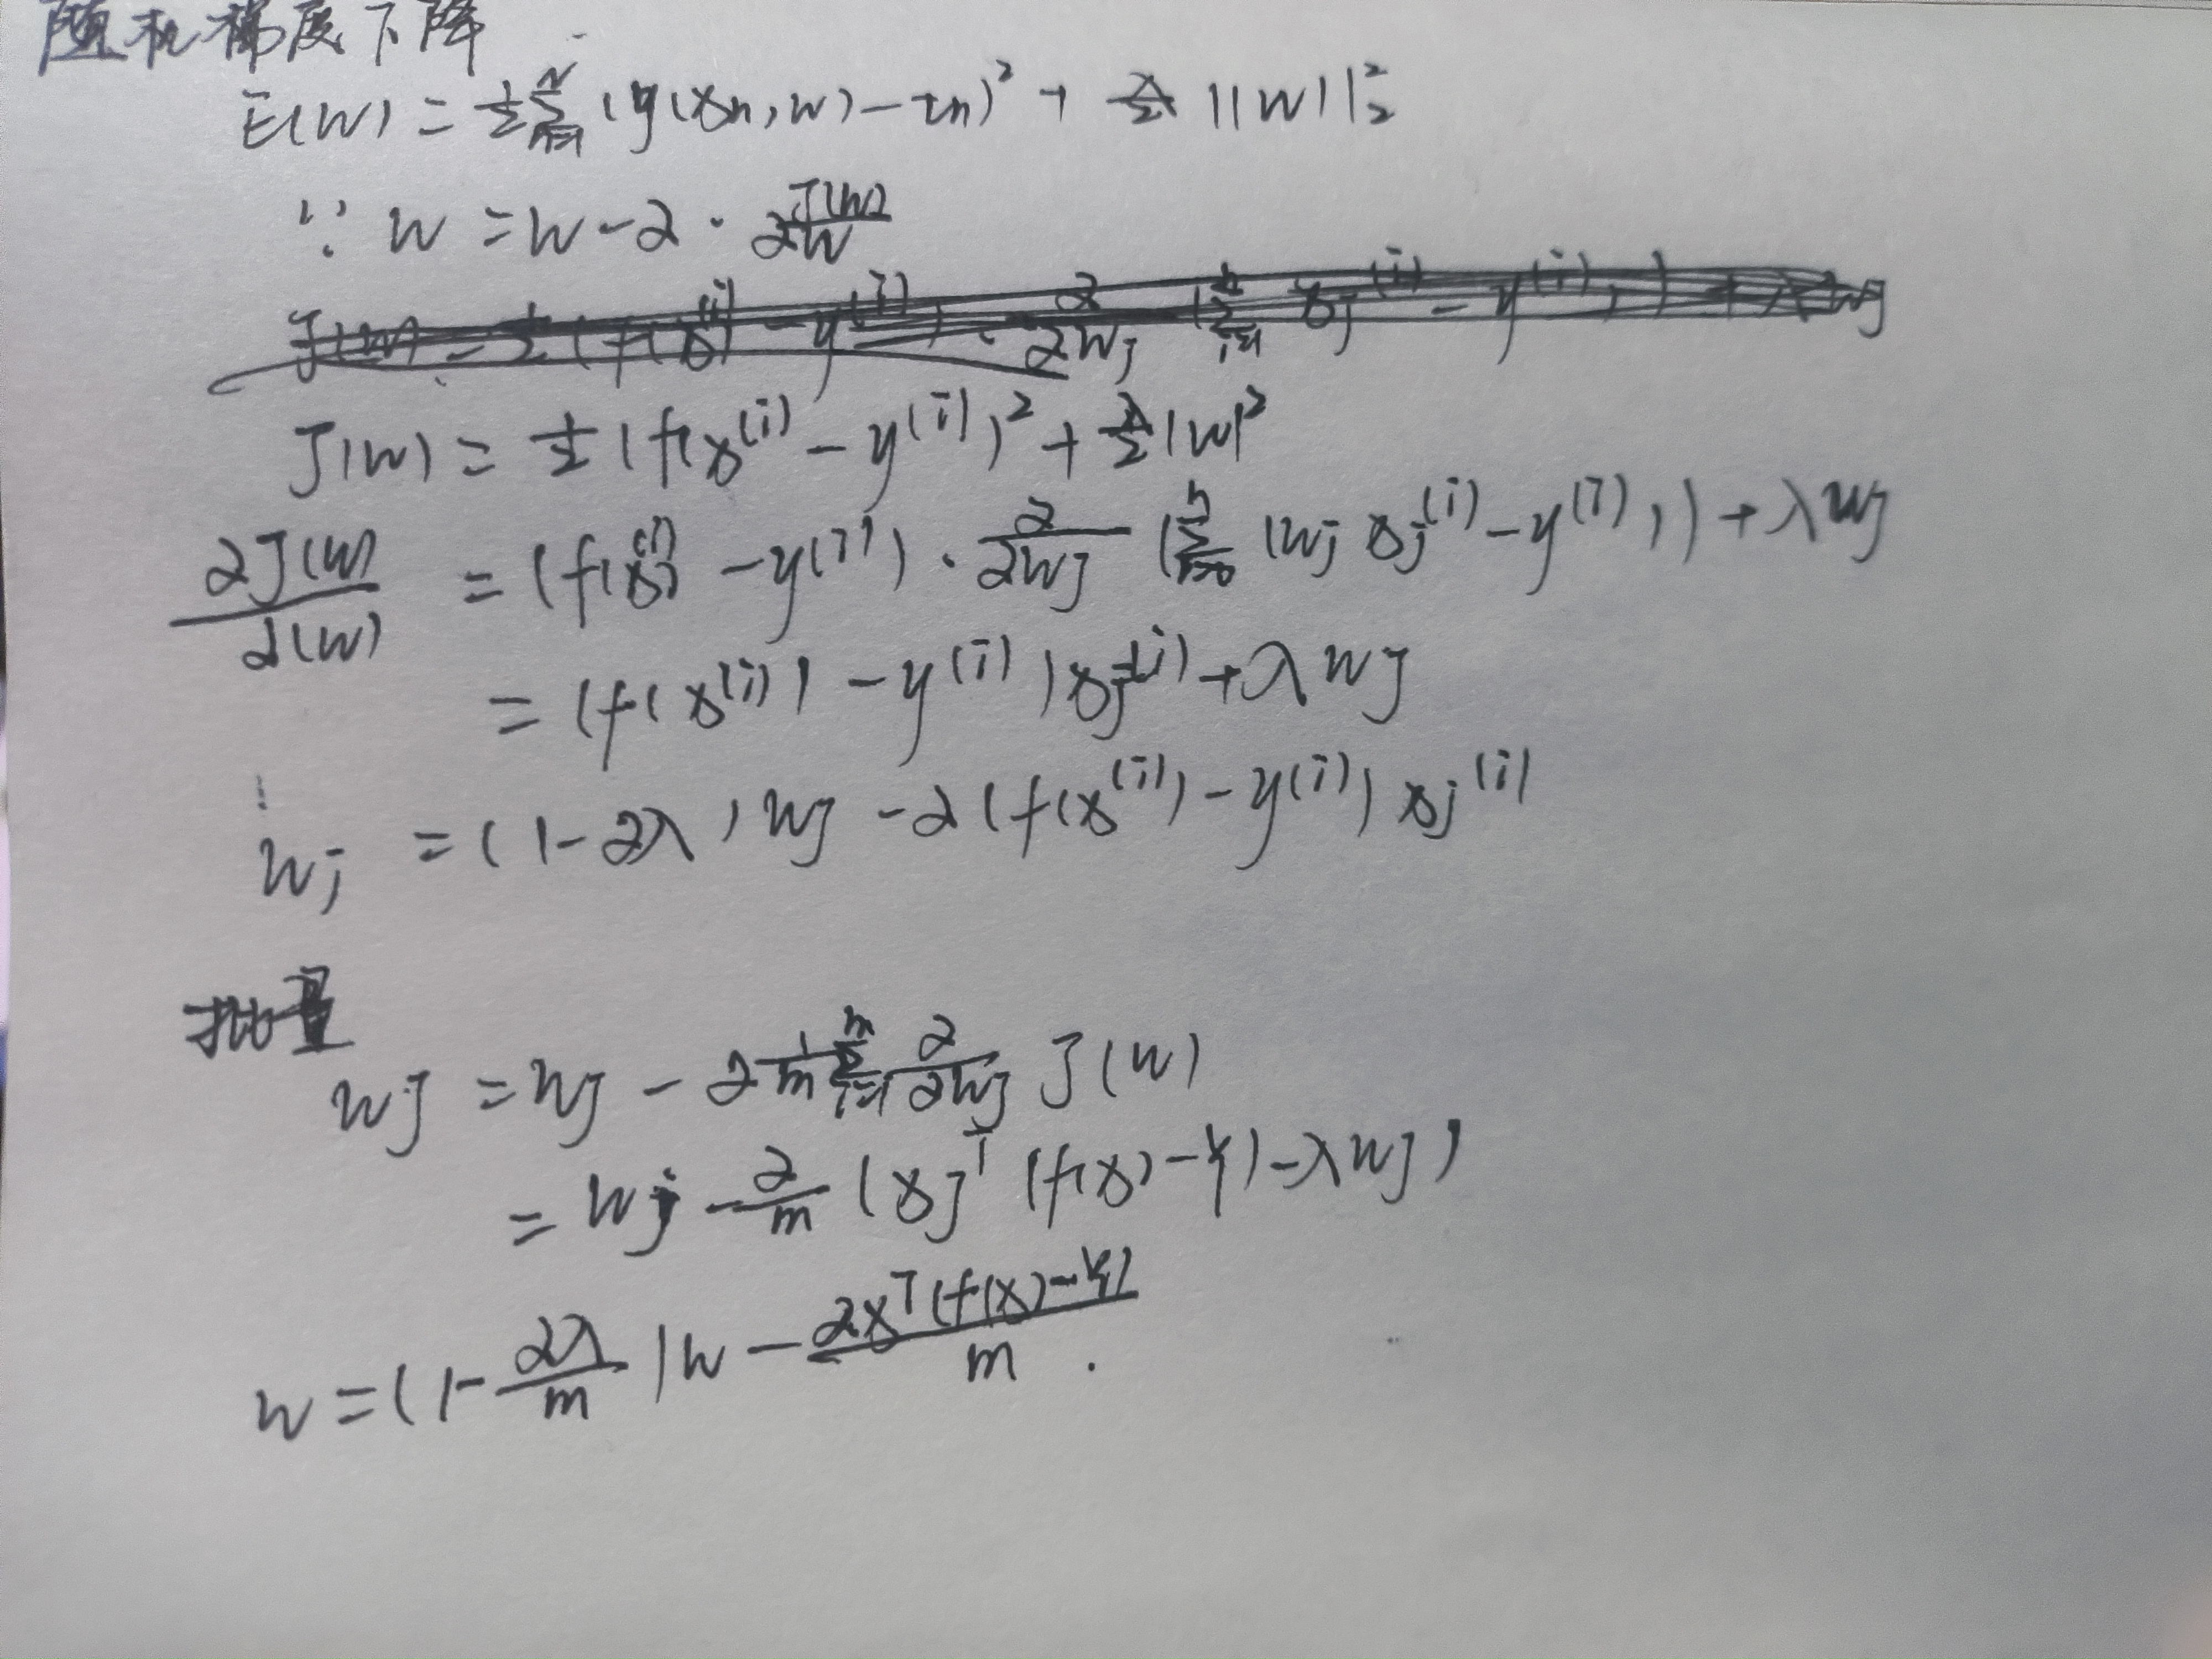 随机梯度下降
E(W) = 1/2 Σ_{n=1}^{N} (y(xn, w) - tn)² + λ/2 ||W||₂²
∵ w = w - α · ∂J(w)/∂w
J(w) = 1/2 (f(x^(i) - y^(i))² + λ/2 |w|²
∂J(w)/∂(w) = (f(x^(i)) - y^(i)) · ∂/∂wj (Σ_{i=0}^{n} (wj xj^(i) - y^(i))) + λwj
= (f(x^(i)) - y^(i)) xj^(i) + λwj
wj = (1 - αλ) wj - α (f(x^(i)) - y^(i)) xj^(i)
批量
wj = wj - α 1/m Σ_{i=1}^{m} ∂/∂wj J(w)
= wj - α/m (xj^T (f(x) - y) - λwj)
w = (1 - αλ/m) w - αx^T(f(x) - y)/m .